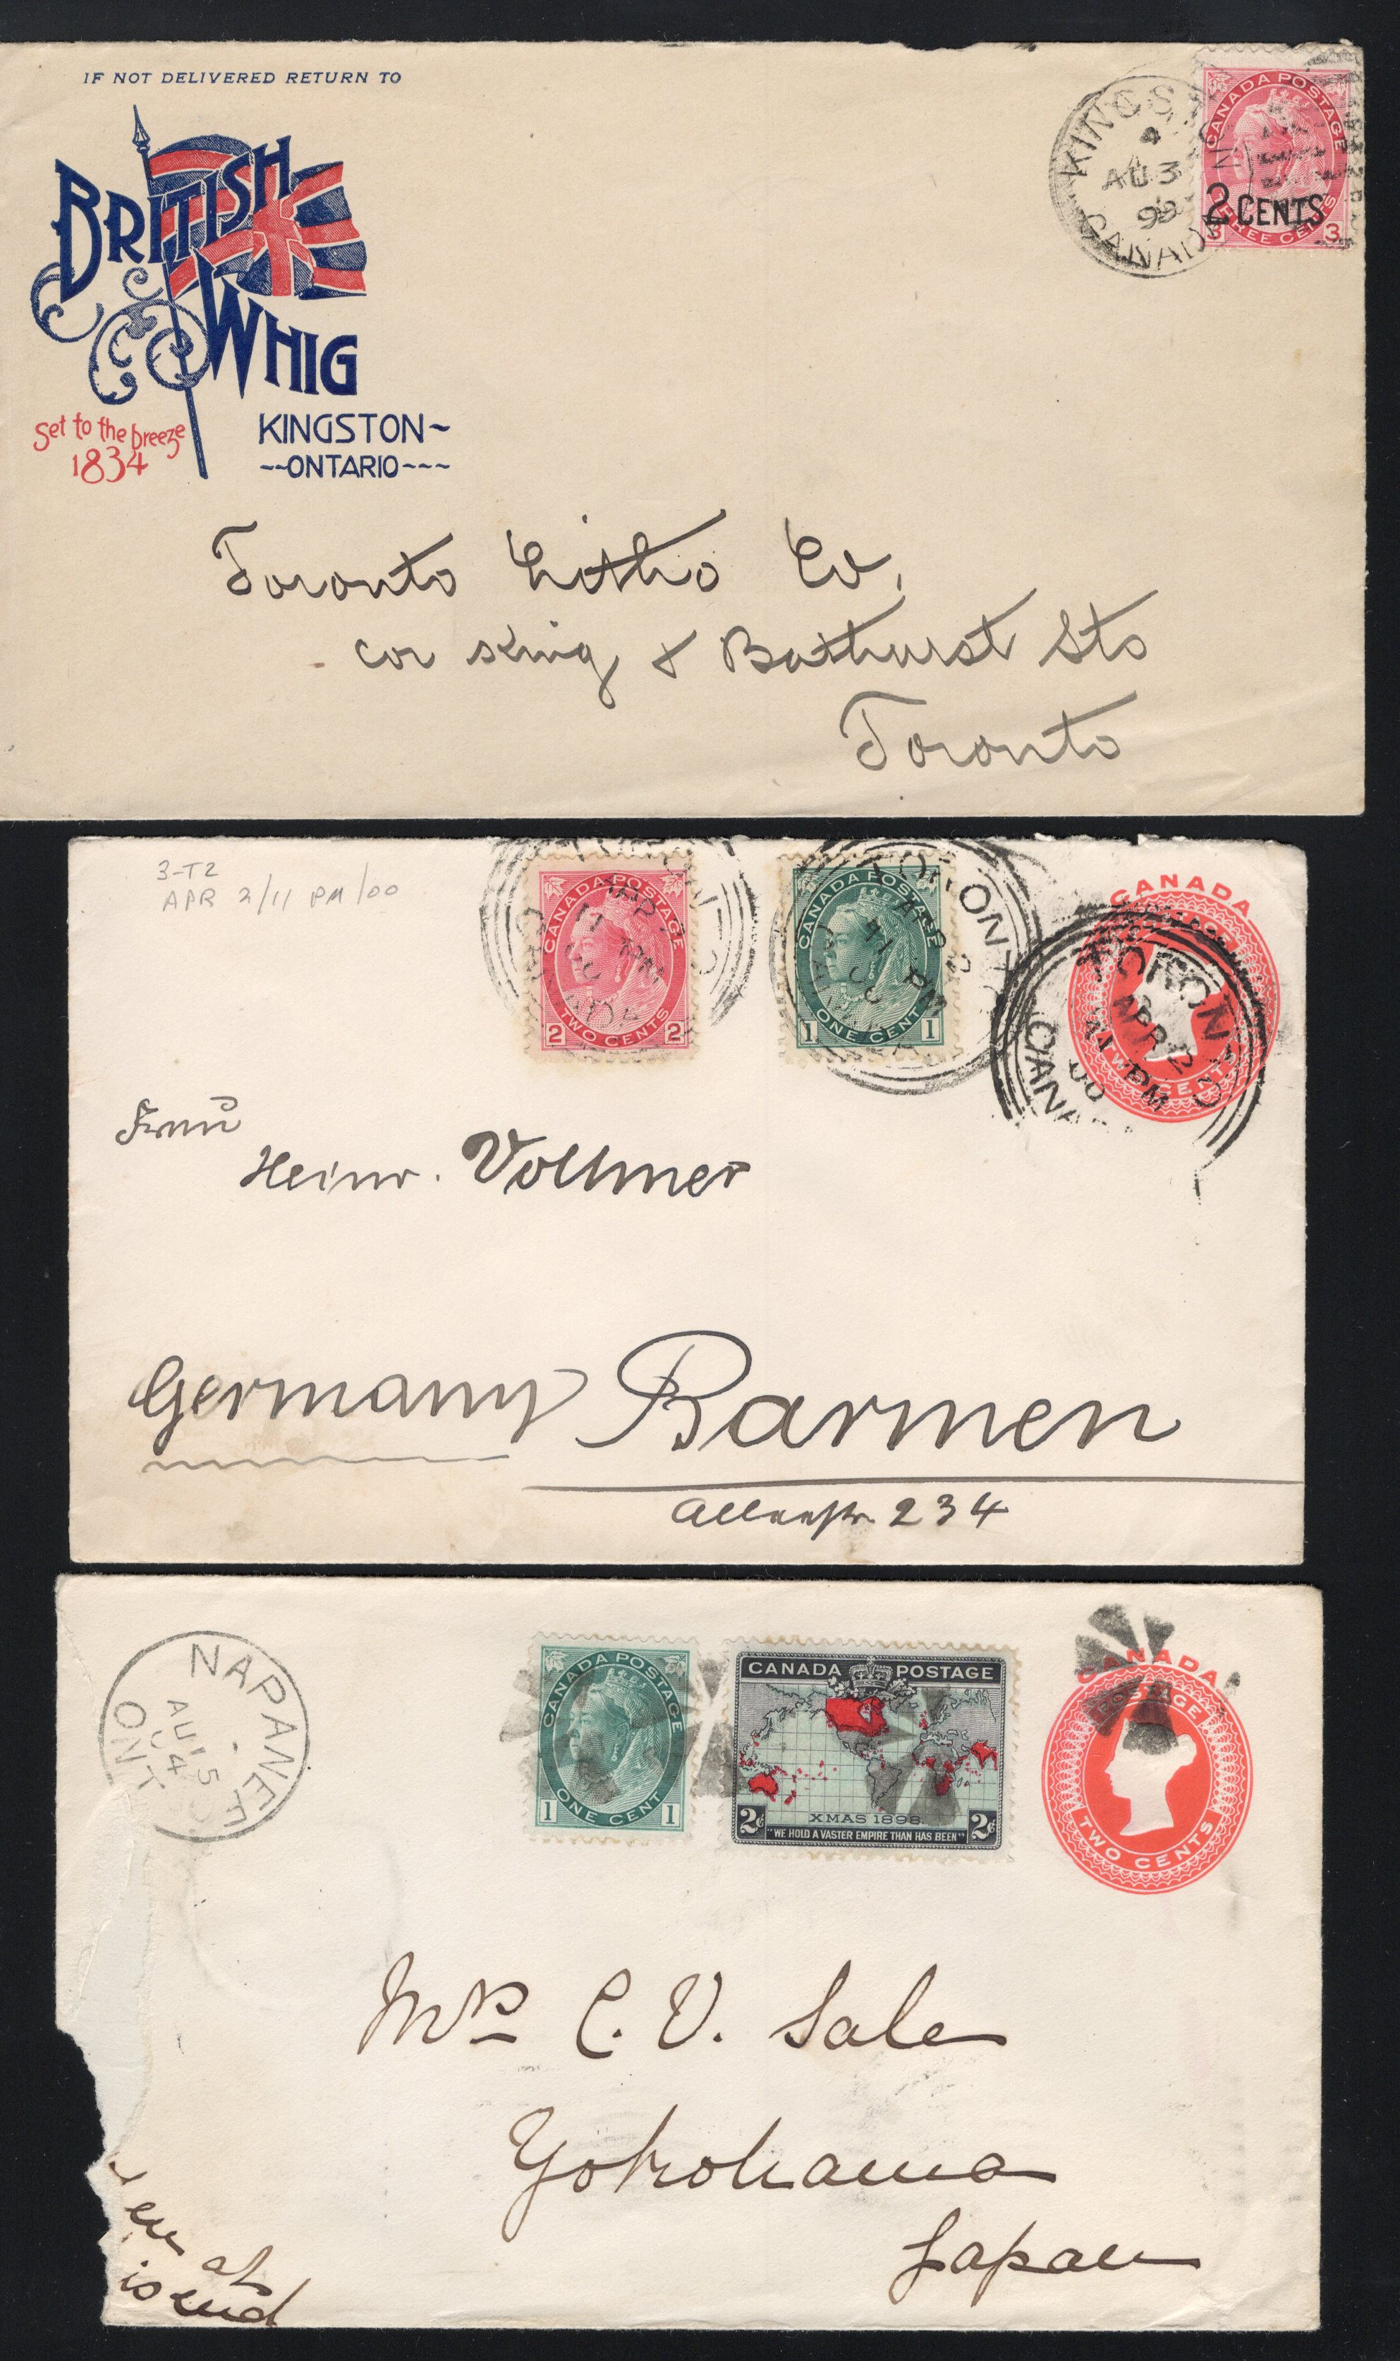 IF NOT DELIVERED RETURN TO
BRITISH
WHIG
Set to the breeze
1834
KINGSTON~
~~ONTARIO~~~
KINGST
4
AU 3
99
CANADA
CANADA POSTAGE
2 CENTS
3 THREE CENTS 3
Toronto Litho Co.
cor King & Bathurst Sts
Toronto
3-T2
APR 2/11 PM/00
CANADA POSTAGE
2 TWO CENTS 2
APR 2
11 PM
00
CANADA
CANADA POSTAGE
1 ONE CENT 1
TORONTO
APR 2
11 PM
00
CANADA
CANADA
TWO CENTS
TORONTO
APR 2
11 PM
00
CANADA
Frau
Heinr. Vollmer
Germany Barmen
Alleestr 234
NAPANEE
AU 15
04
ONT
CANADA POSTAGE
1 ONE CENT 1
CANADA POSTAGE
XMAS 1898
2c "WE HOLD A VASTER EMPIRE THAN HAS BEEN" 2c
CANADA
POSTAGE
TWO CENTS
Mrs C. V. Sale
Yokohama
Japan
en at
is end